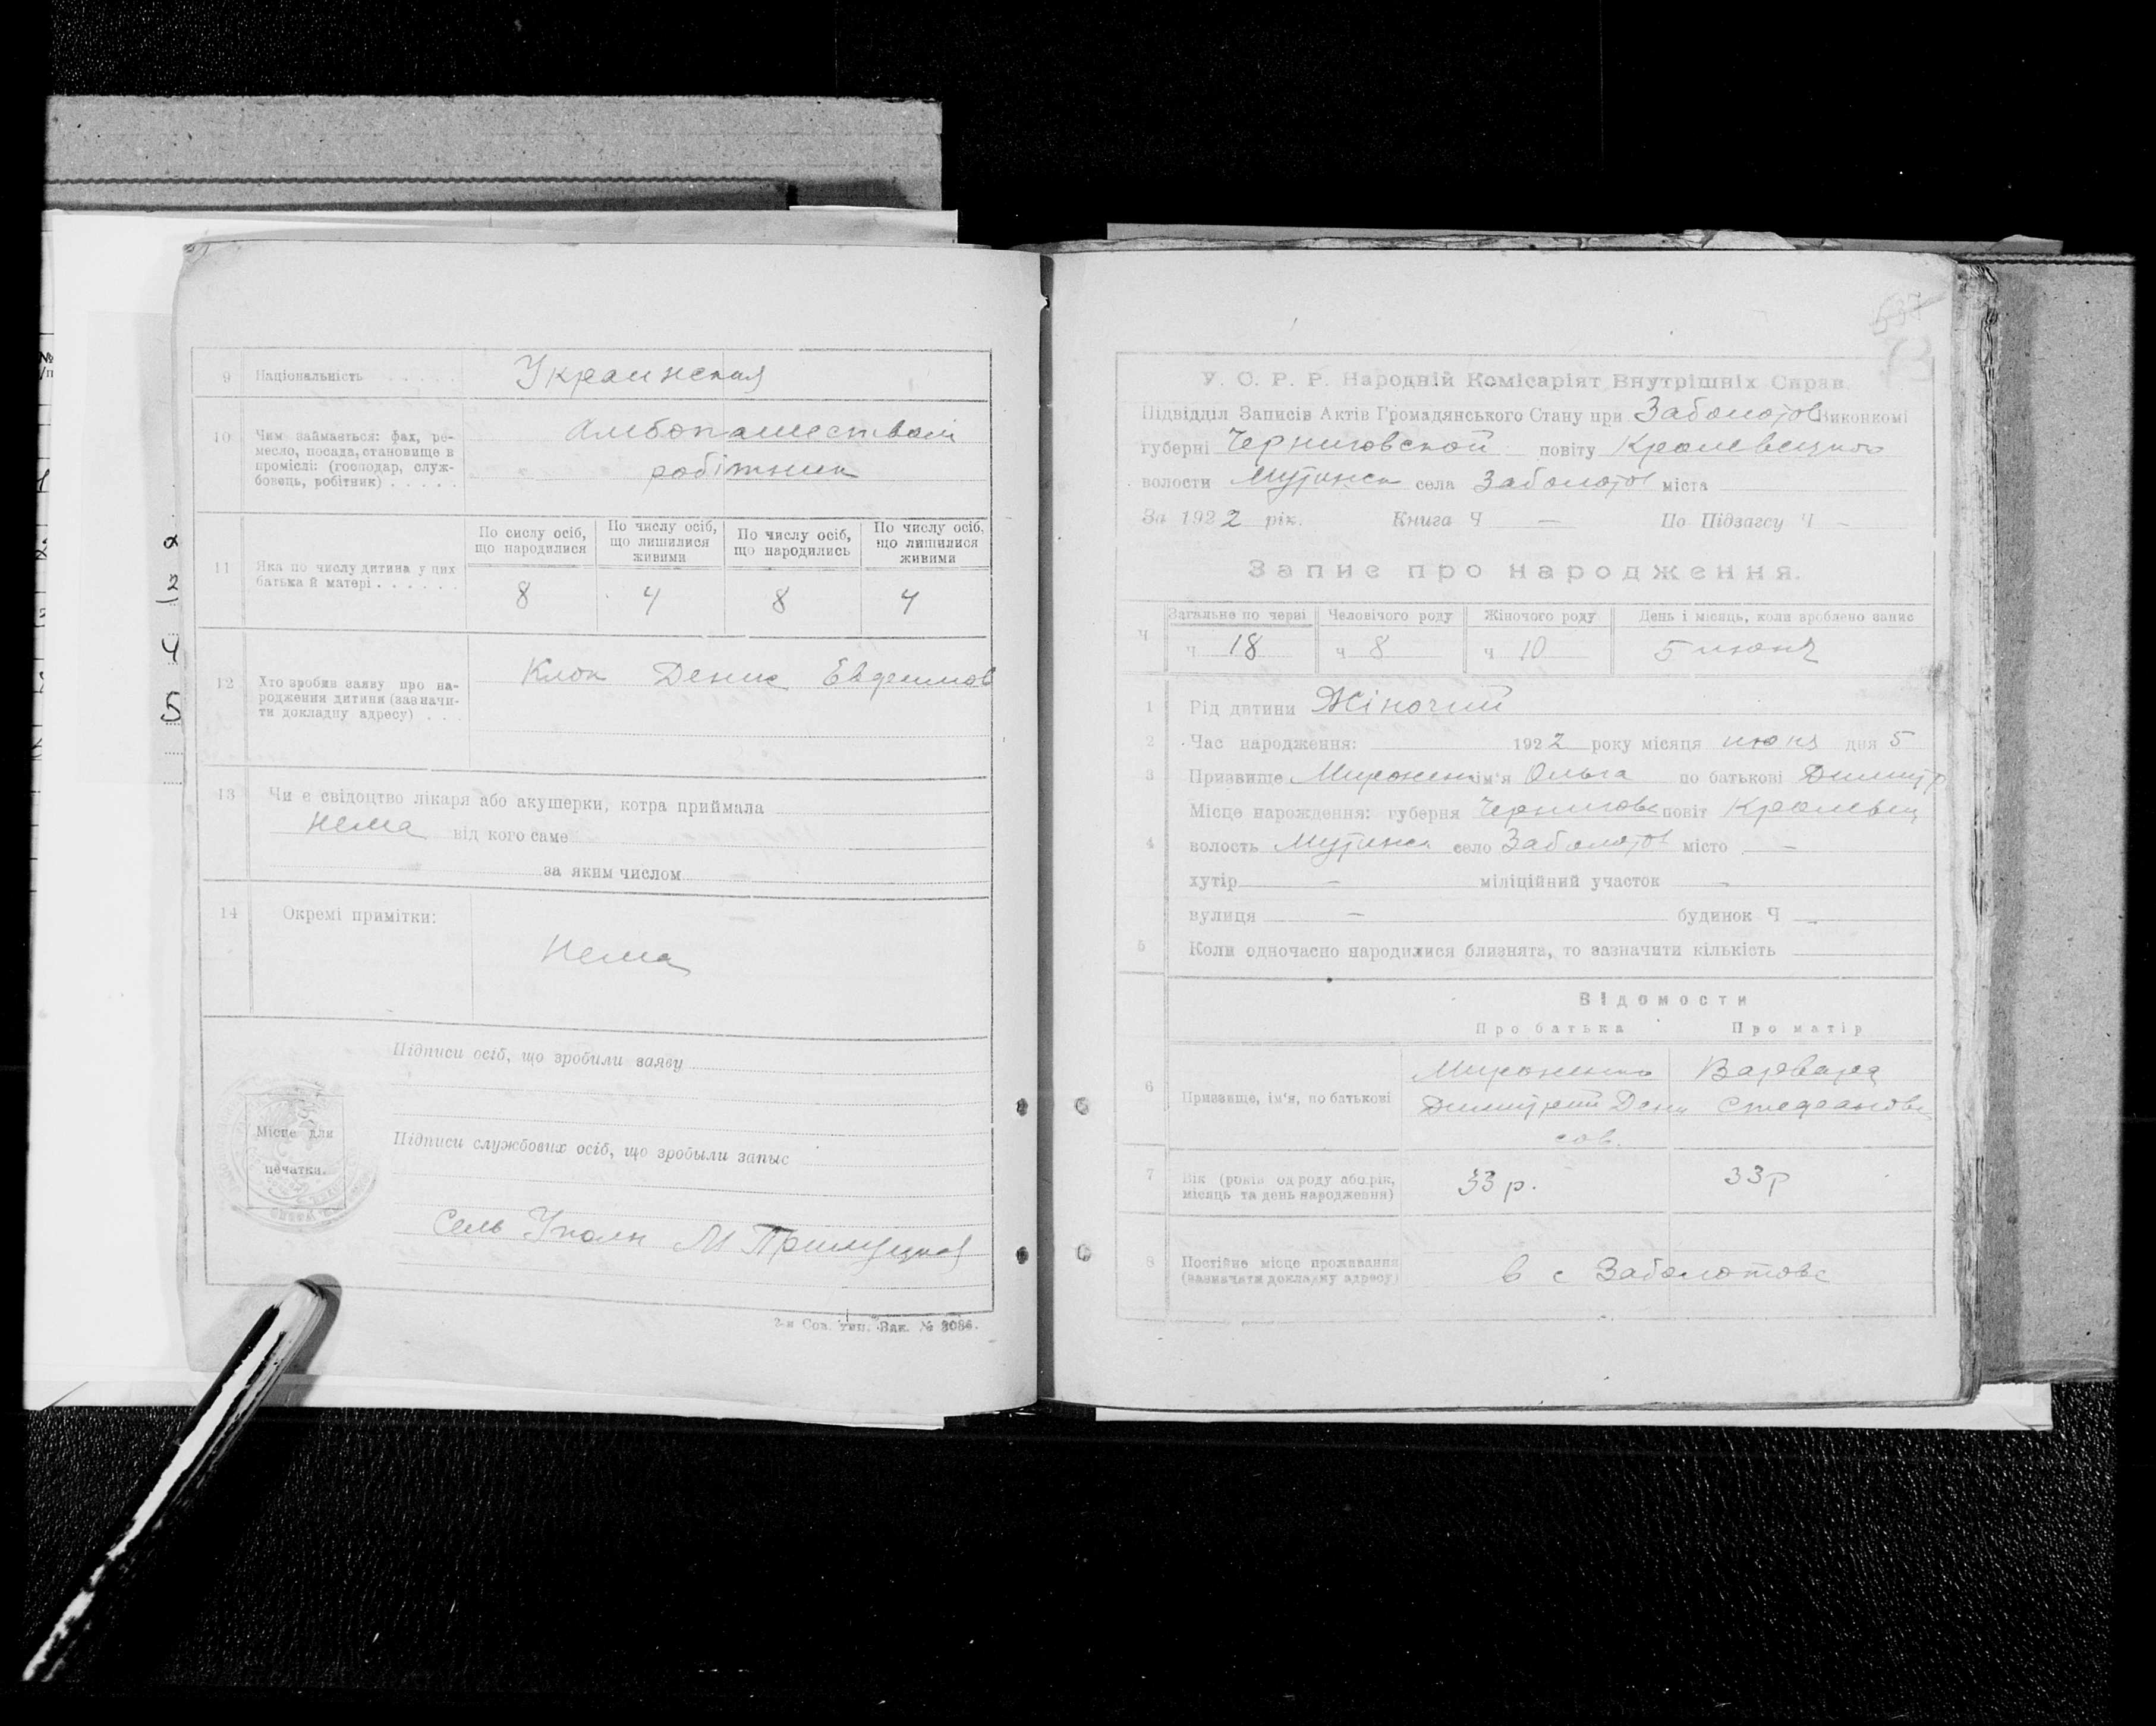 9 Національність Украинская
10 Чим займається: фах, ре-
месло, посада, становище в
проміслі: (господар, служ-
бовець, робітник)
робітник
По сислу осіб, що народилися
По числу осіб, що лишилися живими
По числу осіб, що народились
По числу осіб, що лишилися живими
11 Яка по числу дитина у цих
батька й матері
8 4 8 4
12 Хто зробив заяву про на-
родження дитини (зазначи-
ти докладну адресу)
Клок Денис Евфимов
13 Чи є свідоцтво лікаря або акушерки, котра приймала
нема від кого саме
за яким числом
14 Окремі примітки:
Нема
Підписи осіб, що зробили заяву
Місце для
печатки.
Підписи службових осіб, що зробыли запыс
Сель Уполн М
2-я Сов. тип. Зак. №
У. С. Р. Р. Народній Комісаріят Внутрішніх Справ
Підвідділ Записів Актів Громадянського Стану при Заболотов Виконкомі
губерні Черниговской повіту Кролевецкого
волости Мутинск села Заболотов міста
За 1922 рік. Книга Ч — По Підзагсу Ч —
Запис про народження.
Загальне по черзі Человічого роду Жіночого роду День і місяць, коли зроблено запис
Ч ч 18 ч 8 ч 10 5 июня
1 Рід дитини Жіночий
2 Час народження: 1922 року місяця июня дня 5
3 Призвище Миронен ім'я Ольга по батькові Димитр
Місце нарождення: губерня Чернигов повіт Кролевец
4 волость Мутинск село Заболотов місто —
хутір — міліційний участок —
вулиця — будинок Ч —
5 Коли одночасно народилися близнята, то зазначити кількість
Відомости
Про батька Про матір
6 Призвище, ім'я, по батькові
Мироненко Варвара
Димитрий Дени Стефановна
сов.
7 Вік (років од роду або рік,
місяць та день народження)
33 р. 33 р
8 Постійне місце проживання
(зазначати докладну адресу)
в с Заболотове